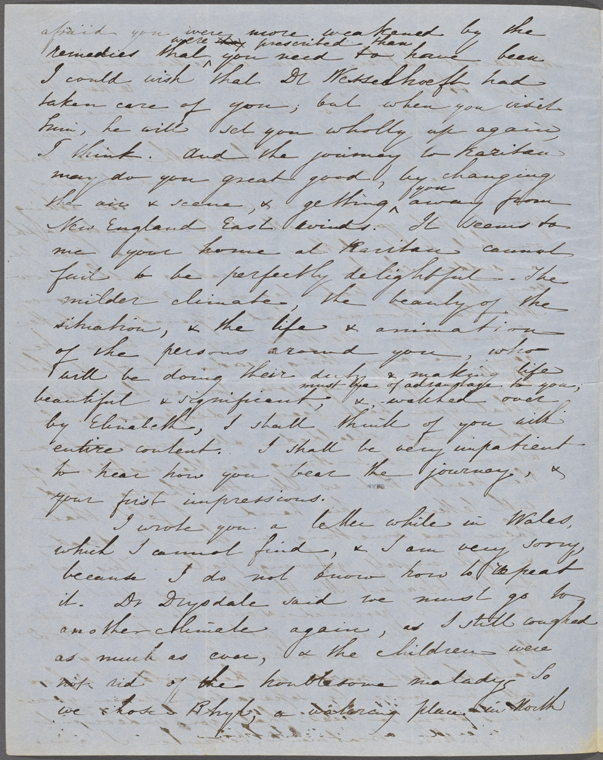 afraid you were more weakened by the
were prescribed than
remedies that ^ you need to have been
I could wish that Dr Wesselhoeft had
taken care of you; but when you visit
him, he will set you wholly up again,
I think. And the journey to Raritan
may do you great good, by changing
you
the air & scene, & getting ^ away from
New England East winds. It seems to
me your home at Raritan cannot
fail to be perfectly delightful. The
milder climate, the beauty of the
situation, & the life & animation
of the persons around you, who
will be doing their duty & making life
must be of advantage to you;
beautiful & significant, & watched over
by Elizabeth, I shall think of you with
entire content. I shall be very impatient
to hear how you bear the journey, &
your first impressions.
I wrote you a letter while in Wales,
which I cannot find, & I am very sorry,
because I do not know how to repeat
it. Dr Drysdale said we must go to
another climate again, as I still coughed
as much as ever, & the children were
not rid of the troublesome malady. So
we chose Rhyl, a watering place in North